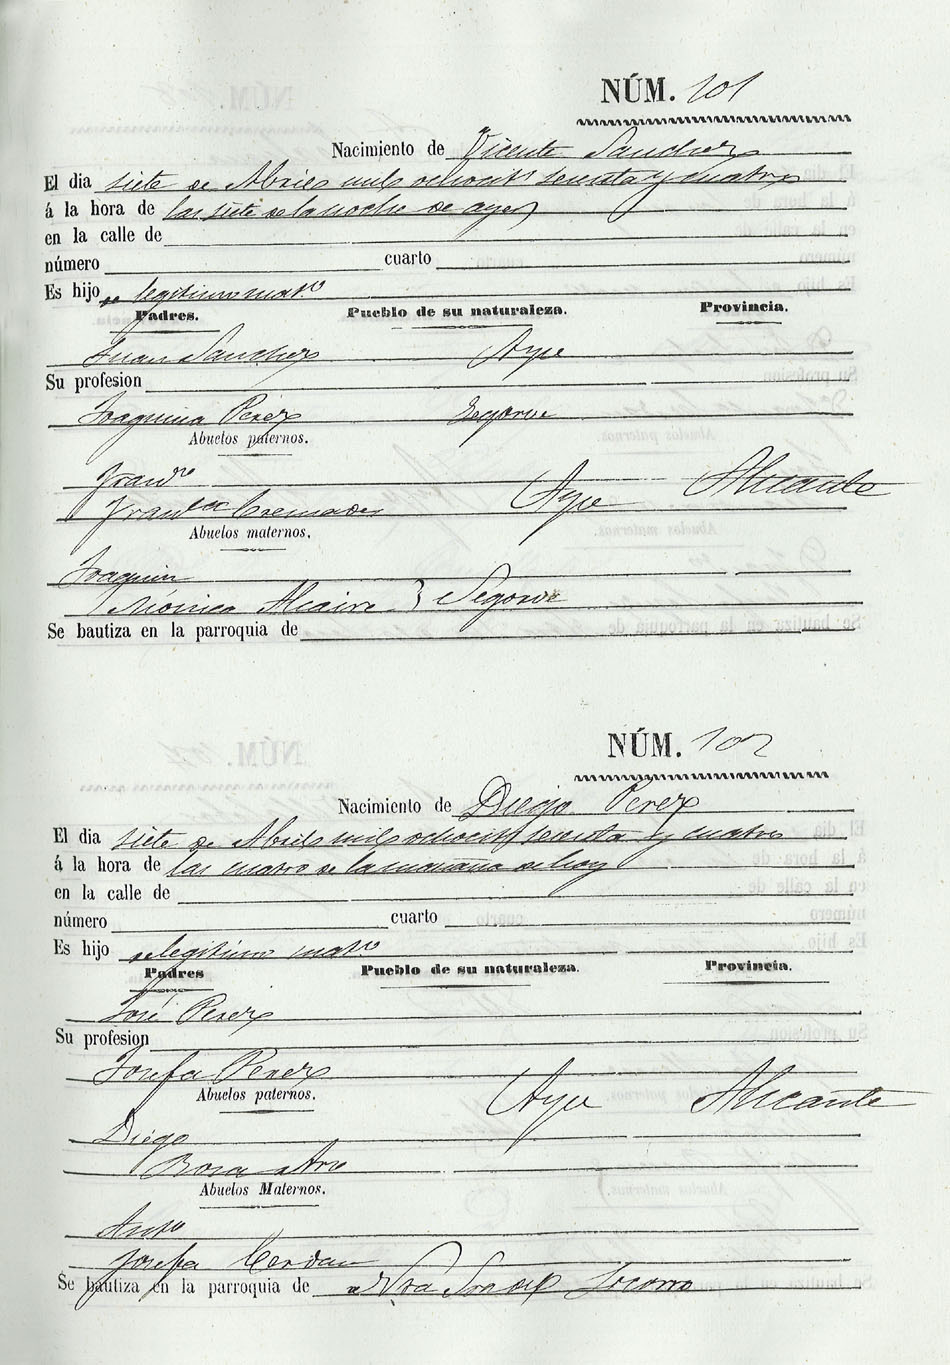 NÚM. 101
Nacimiento de Vicente Sanchez
El dia siete de Abril mil ochocits sesenta y cuatro
á la hora de las siete de la noche de ayer
en la calle de
número cuarto
Es hijo de legitimo mato
Padres. Pueblo de su naturaleza. Provincia.
Juan Sanchez Aspe
Su profesion
Joaquina Perez Segorve
Abuelos paternos.
Franco
Franca Cremades Aspe Alicante
Abuelos maternos.
Joaquin
Mónica Alcaire } Segorve
Se bautiza en la parroquia de
NÚM. 102
Nacimiento de Diego Perez
El dia siete de Abril mil ochocits sesenta y cuatro
á la hora de las cuatro de la mañana de hoy
en la calle de
número cuarto
Es hijo de legitimo mato
Padres Pueblo de su naturaleza. Provincia.
José Perez
Su profesion
Josefa Perez
Abuelos paternos. Aspe Alicante
Diego
Rosa
Abuelos Maternos.
Anto
Josefa Cerdan
Se bautiza en la parroquia de Ntra Sra del Socorro